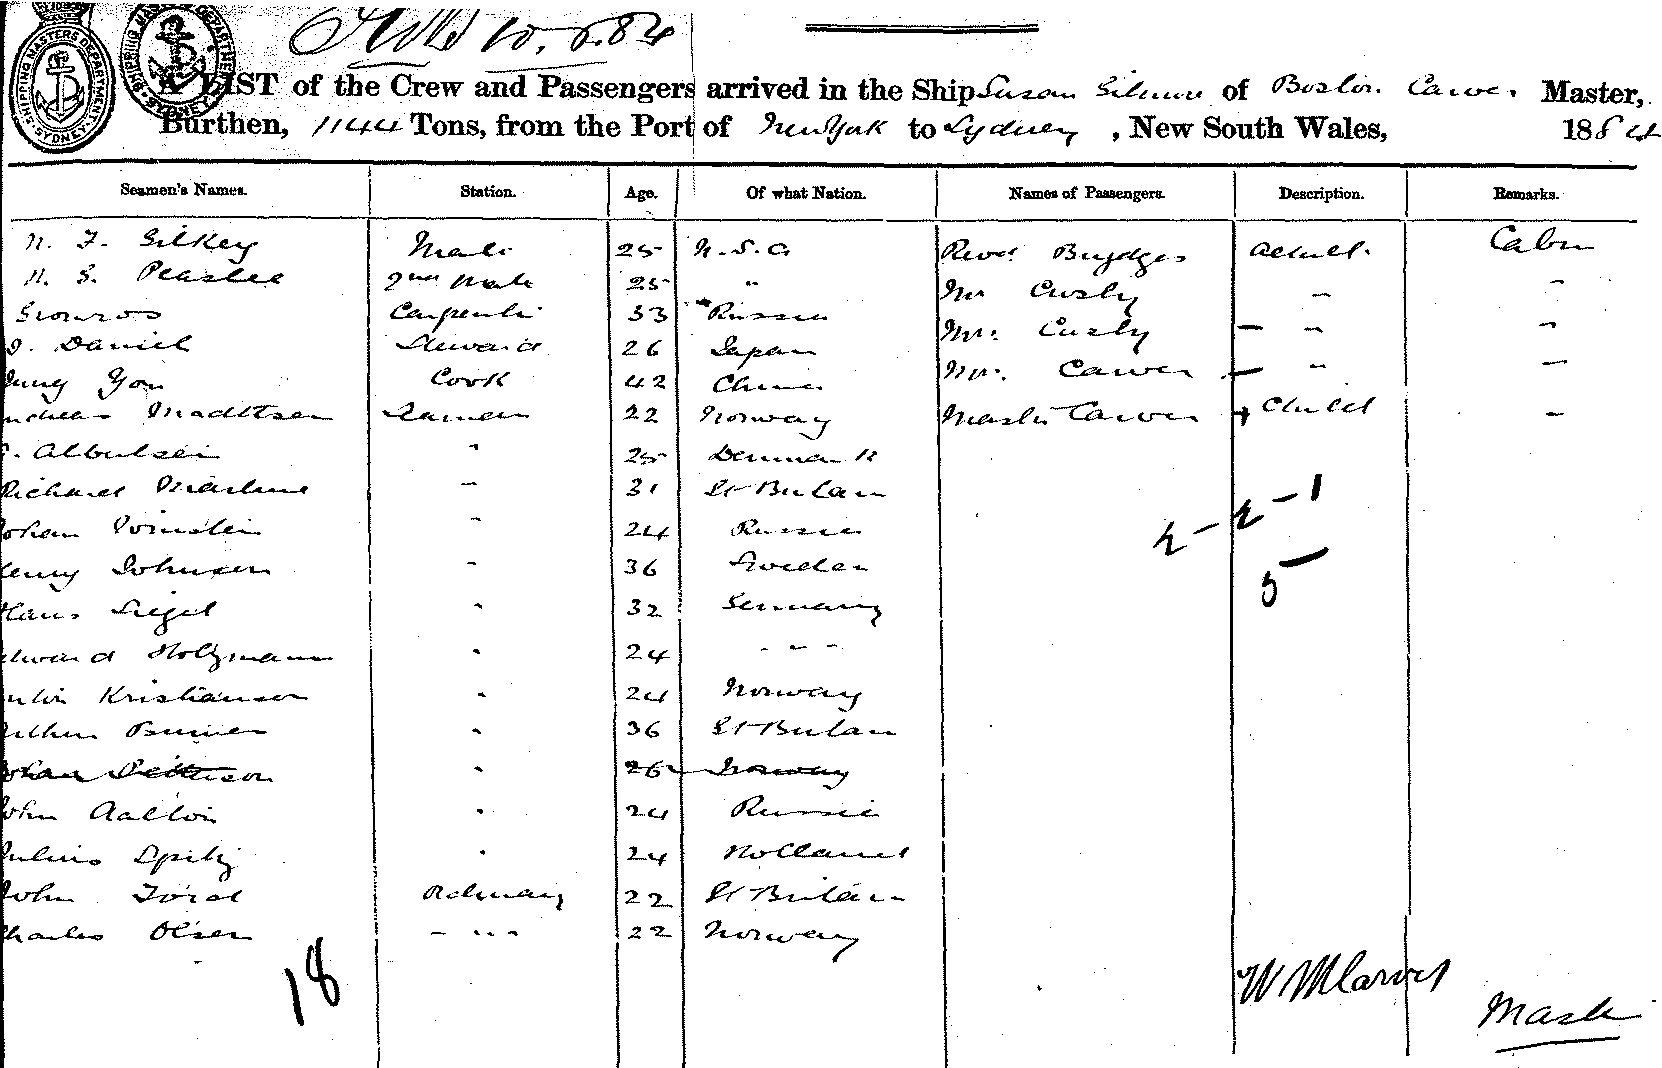 SHIPPING MASTERS DEPARTMENT SYDNEY
10.6.84
A LIST of the Crew and Passengers arrived in the Ship Susan Gilmore of Boston. Carver, Master,
Burthen, 1144 Tons, from the Port of New York to Sydney, New South Wales, 1884
Seamen's Names. Station. Age. Of what Nation. Names of Passengers. Description. Remarks.
N. F. Gilkey Mate 25 U.S.A Revd Adult. Cabin
N. S. Peaslee 2nd Mate 25 " Mr Cushy " "
Carpenter 33 Russia Mrs. Cushy — " "
J. Daniel Steward 26 Japan Mrs. Carver — " —
Yon Cook 42 China Master Carver + Child —
Madttsen Seaman 22 Norway
" 25 Denmark
Richard " 31 Gt Britain
Johan " 24 Russia
Henry Johnsen " 36 Sweden
Hans Siegel " 32 Germany
Edward Holzmann " 24 " " "
Kristiansen " 24 Norway
" 36 Gt Britain
Johan Petterson " 26 Norway
John " 24 Russia
Julius Spitz " 24 Holland
John Ford Ordinary 22 Gt Britain
Charles Olsen " " " 22 Norway
2 – 2 – 1
5
18
W M Carver
Master